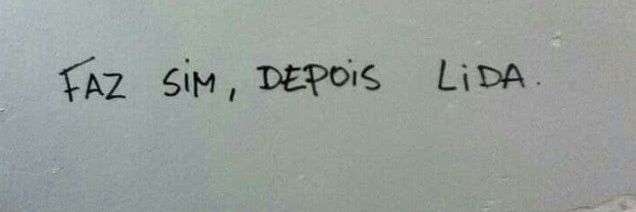 FAZ SIM, DEPOIS LIDA.